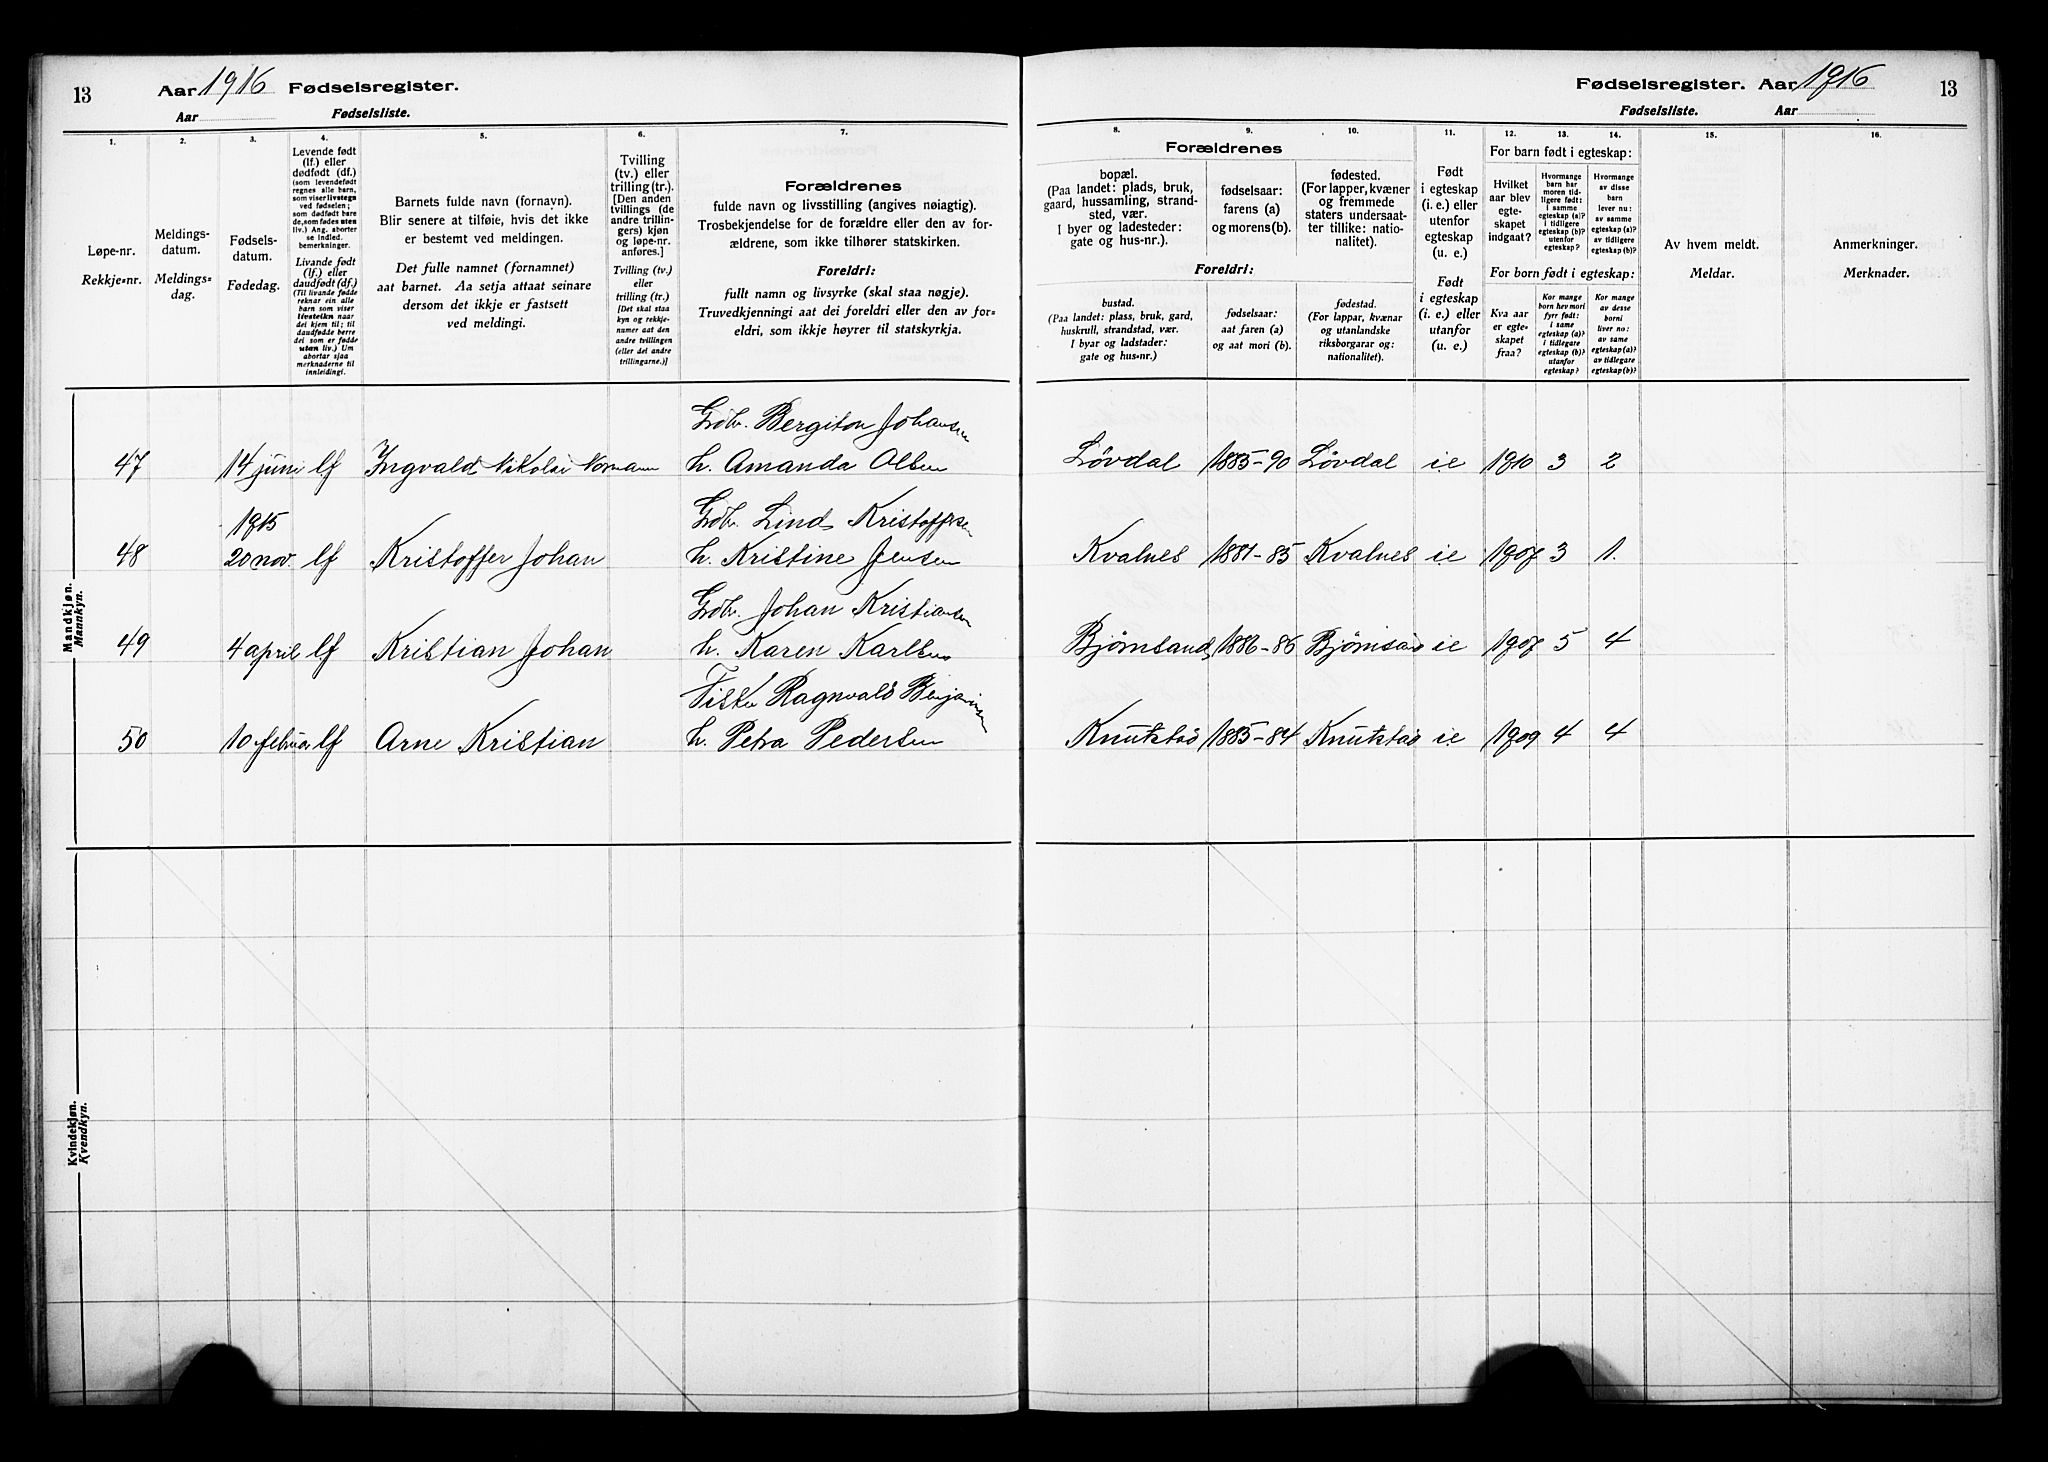 13
Aar 1916 Fødselsregister.
Aar Fødselsliste.
1.
2.
3.
4.
5.
6.
7.
Løpe-nr.
Rekkje-nr.
Meldings-
datum.
Meldings-
dag.
Fødsels-
datum.
Fødedag.
Levende født
(lf.) eller
dødfødt (df.)
(som levendefødt
regnes alle barn,
som viser livstegn
ved fødselen;
som dødfødt bare
de, som fødes uten
liv.) Ang. aborter
se indled.
bemerkninger.
Livande født
(lf.) eller
daudfødt (df.)
(Til livande fødde
reknar ein alle
barn som viser
livsteikn naar
dei kjem til; til
daudfødde berre
dei som er fødde
utan liv.) Um
abortar sjaa
merknaderne til
innleidingi.
Barnets fulde navn (fornavn).
Blir senere at tilføie, hvis det ikke
er bestemt ved meldingen.
Det fulle namnet (fornamnet)
aat barnet. Aa setja attaat seinare
dersom det ikkje er fastsett
ved meldingi.
Tvilling
(tv.) eller
trilling (tr.).
[Den anden
tvillings (de
andre trillin-
gers) kjøn
og løpe-nr.
anføres.]
Tvilling (tv.)
eller
trilling (tr.)
[Det skal staa
kyn og rekkje-
numer aat den
andre tvillingen
(eller dei andre
trillingarne.)]
Forældrenes
fulde navn og livsstilling (angives nøiagtig).
Trosbekjendelse for de forældre eller den av for-
ældrene, som ikke tilhører statskirken.
Foreldri:
fullt namn og livsyrke (skal staa nøgje).
Truvedkjenningi aat dei foreldri eller den av for-
eldri, som ikkje høyrer til statskyrkja.
Mandkjøn.
Mannkyn.
Gdbr. Bergiton Johansen
47 14 juni lf Ingvald Nikolai Normann h. Amanda Olsen
1915 Gdbr. Lind Kristoffersen
48 20 nov. lf Kristoffer Johan h. Kristine Jensen
Gdbr. Johan Kristiansen
49 4 april lf Kristian Johan h. Karen Karlsen
Fisker Ragnvald Benjaminsen
50 10 februar lf Arne Kristian h. Petra Pedersen
Kvindekjøn.
Kvendkyn.
Fødselsregister. Aar 1916
13
Fødselsliste. Aar
8.
9.
10.
11.
12.
13.
14.
15.
16.
Forældrenes
bopæl.
(Paa landet: plads, bruk,
gaard, hussamling, strand-
sted, vær.
I byer og ladesteder:
gate og hus-nr.).
fødselsaar:
farens (a)
og morens (b).
fødested.
(For lapper, kvæner
og fremmede
staters undersaat-
ter tillike: natio-
nalitet).
Foreldri:
bustad.
(Paa landet: plass, bruk, gard,
huskrull, strandstad, vær.
I byar og ladstader:
gate og hus-nr.)
fødselsaar:
aat faren (a)
og aat mori (b).
fødestad.
(For lappar, kvænar
og utanlandske
riksborgarar og:
nationalitet).
Født
i egteskap
(i. e.) eller
utenfor
egteskap
(u. e.)
Født
i egteskap
(i. e.) eller
utanfor
(u. e.)
For barn født i egteskap:
Hvilket
aar blev
egte-
skapet
indgaat?
Hvormange
barn har
moren tid-
ligere født:
i samme
egteskap (a)?
i tidligere
egteskap (b)?
utenfor
egteskap?
Hvormange
av disse
barn
lever nu:
av samme
egteskap (a)?
av tidligere
egteskap (b)?
For born født i egteskap:
Kva aar
er egte-
skapet
fraa?
Kor mange
born hev mori
fyrr født:
i same
egteskap (a)?
i tidlegare
egteskap (b)?
utanfor
egteskap?
Kor mange
av desse
borni
liver no:
av same
egteskap (a)?
av tidlegare
egteskap (b)?
Av hvem meldt.
Meldar.
Anmerkninger.
Merknader.
Løvdal 1885-90 Løvdal i.e 1910 3 2
Kvalnes 1881-85 Kvalnes i.e 1907 3 1.
Bjørnsand 1886-86 Bjørnsa i.e 1907 5 4
Knutstad 1885-84 Knutstad i.e 1909 4 4